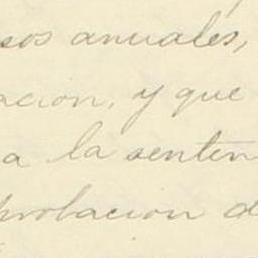 sos anuales,
acion, y que
a la senten
probacion d